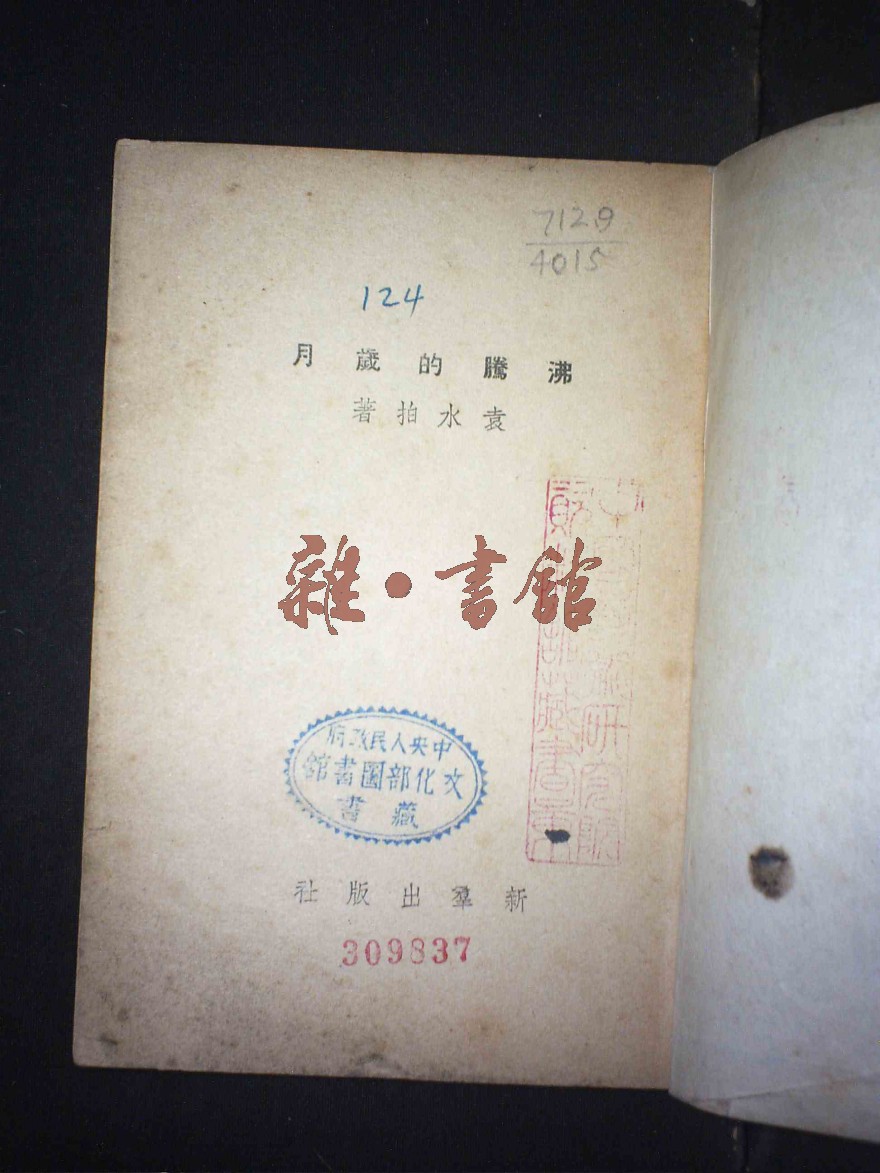 7129
4015
124
沸騰的歲月
袁水拍著
雜·書館
中央人民政府
文化部圖書館
藏書
新羣出版社
309837